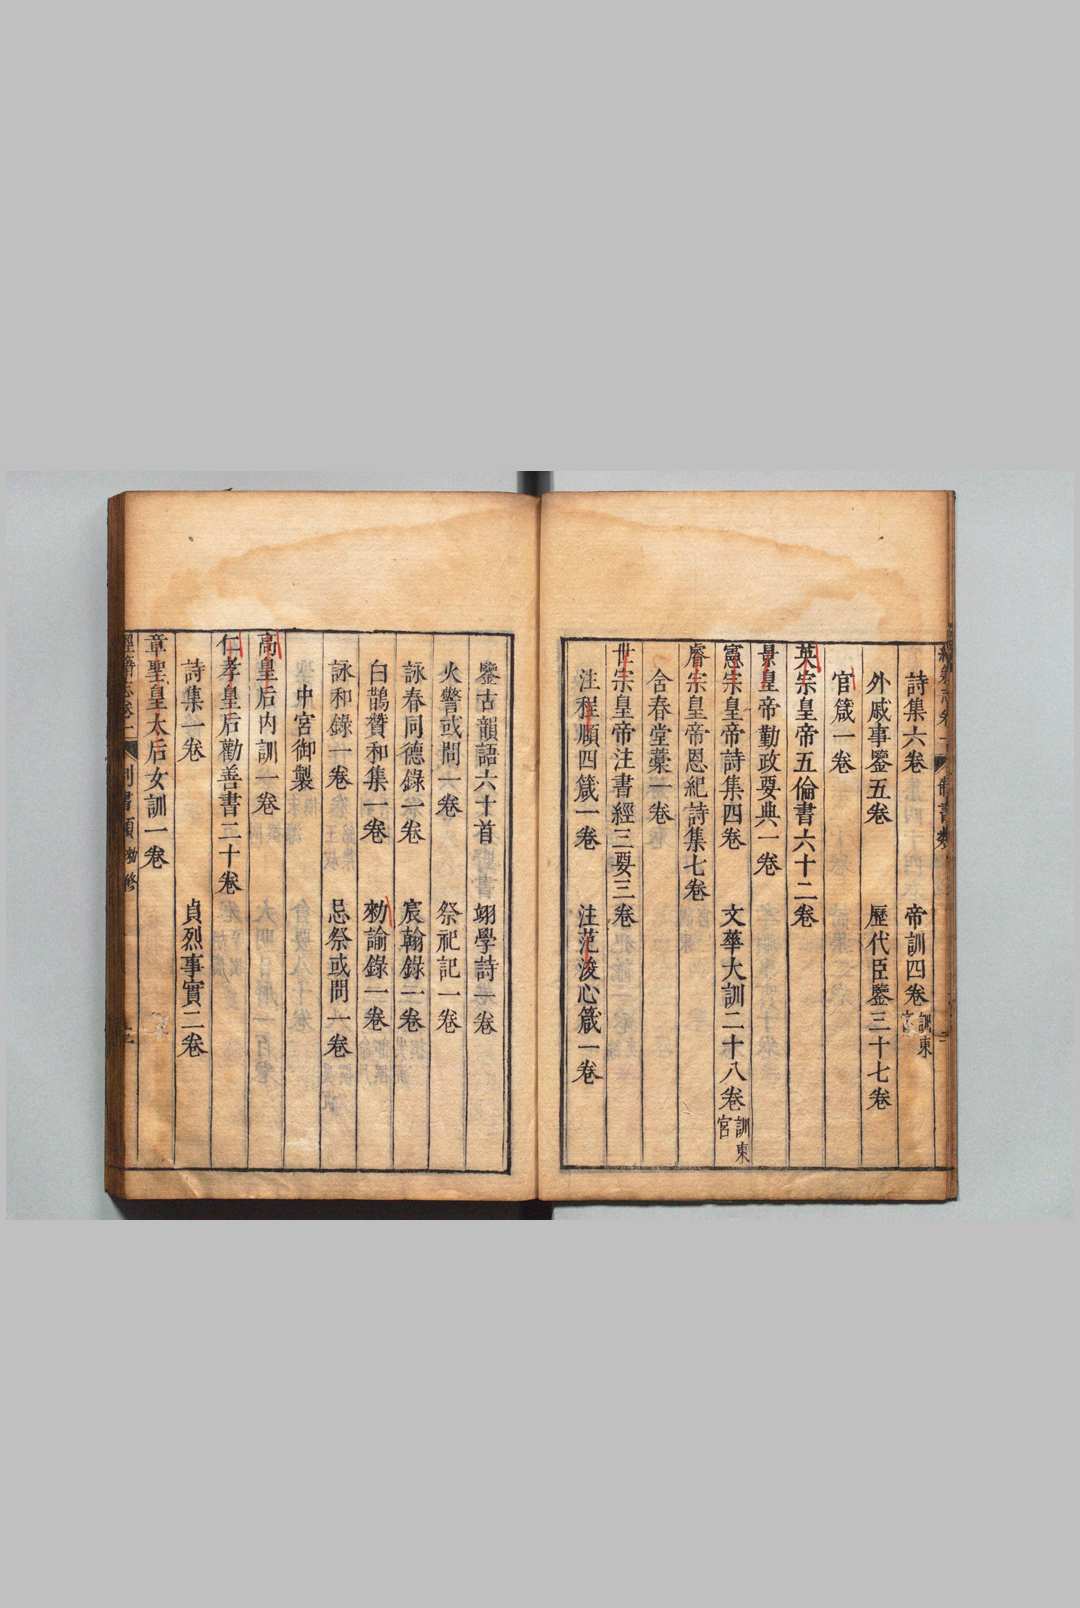 詩集六卷 帝訓四卷 訓東宮
外戚事鑒五卷 歷代臣鑒三十七卷
官箴一卷
英宗皇帝五倫書六十二卷
景皇帝勤政要典一卷
憲宗皇帝詩集四卷 文華大訓二十八卷 訓東宮
睿宗皇帝恩紀詩集七卷
含春堂藁一卷
世宗皇帝注書經三要三卷
注程頤四箴一卷 注范浚心箴一卷
鑒古韻語六十首 翊學詩一卷
火警或問一卷 祭祀記一卷
詠春同德錄一卷 宸翰錄一卷
白鵲贊和集一卷 勑諭錄一卷
詠和錄一卷 忌祭或問一卷
中宮御製
高皇后內訓一卷
仁孝皇后勸善書二十卷
詩集一卷 貞烈事實二卷
章聖皇太后女訓一卷